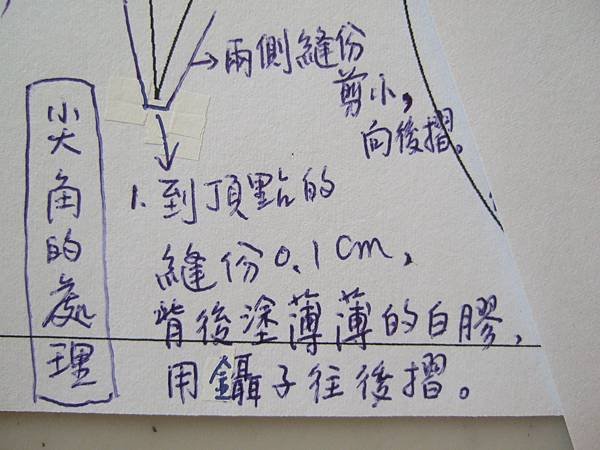 尖角的處理
→兩側縫份
剪小,
向後摺。
1. 到頂點的
縫份0.1cm,
背後塗薄薄的白膠,
用鑷子往後摺。